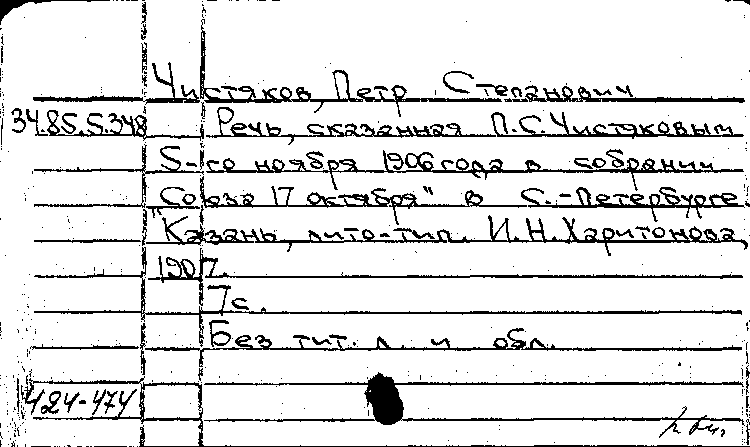 Чистяков, Петр Степанович
34.85.5.348 Речь, сказанная П.С.Чистяковым
5-го ноября 1906 года в собрании
"Союза 17 октября" в С.-Петербурге.
Казань, лито-тип. И.Н.Харитонова,
1907.
7с.
Без тит. л. и обл.
424-474